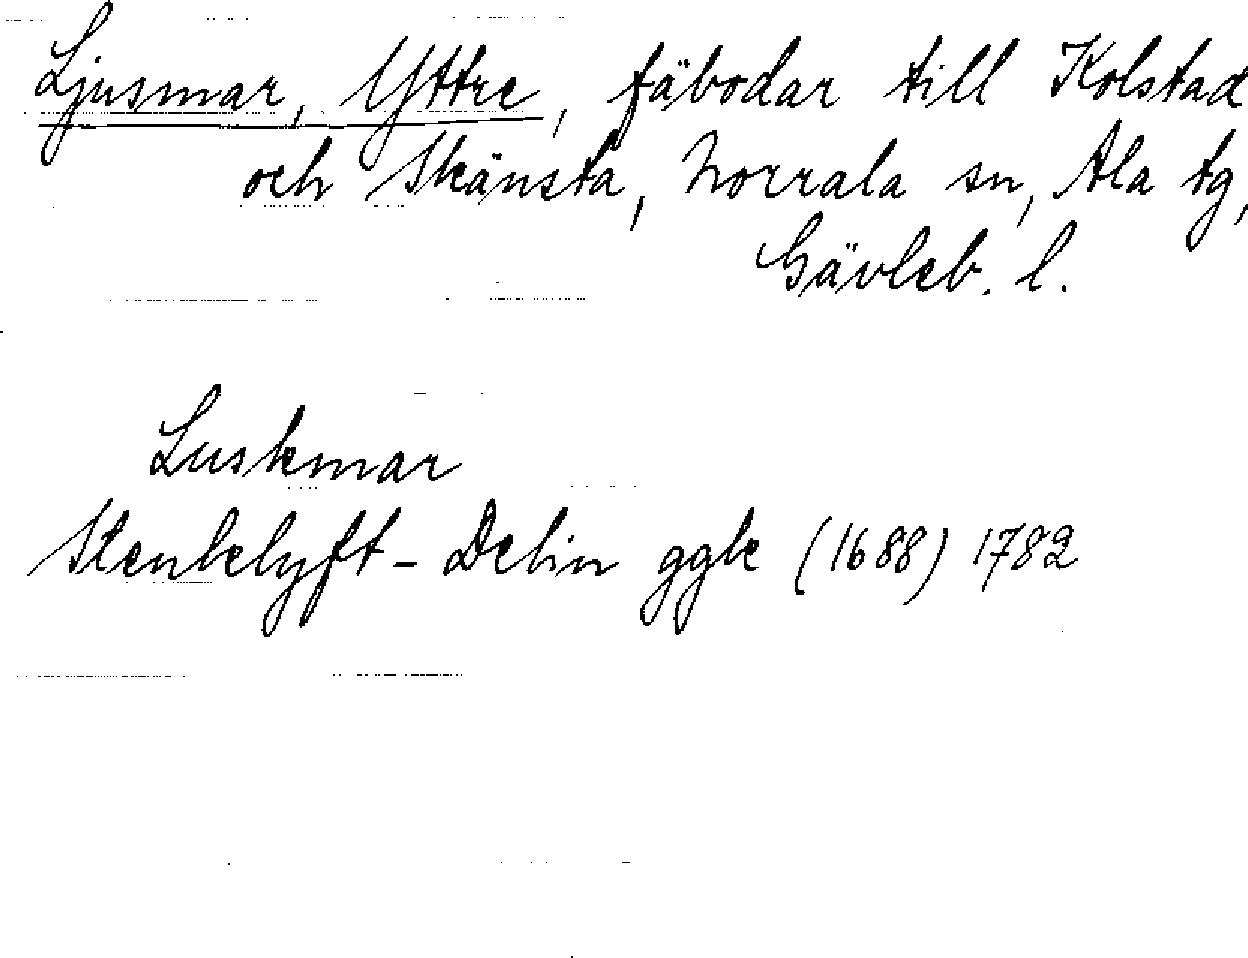 Ljusmar, Yttre, fäbodar till Kolstad
och Skänsta, Norrala sn, Ala tg,
Gävleb. l.
Luskmar
Stenkelyft - Delin ggbe (1688) 1782